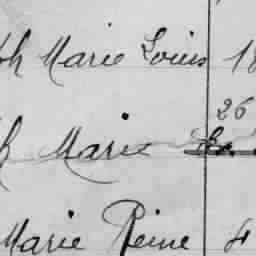 th Marie Louis 18
26
h Marie
Marie Reine 4